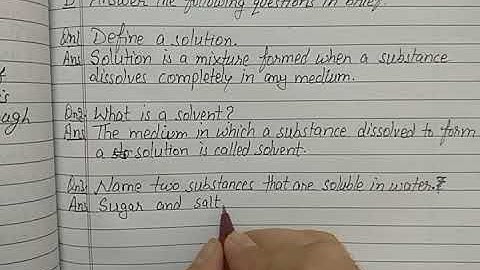 D Answer the following questions in brief.
Qn1 Define a solution.
Ans Solution is a mixture formed when a substance
dissolves completely in any medium.
Qn2. What is a solvent?
Ans The medium in which a substance dissolved to form
a solution is called solvent.
Qn3 Name two substances that are soluble in water.?
Ans Sugar and salt